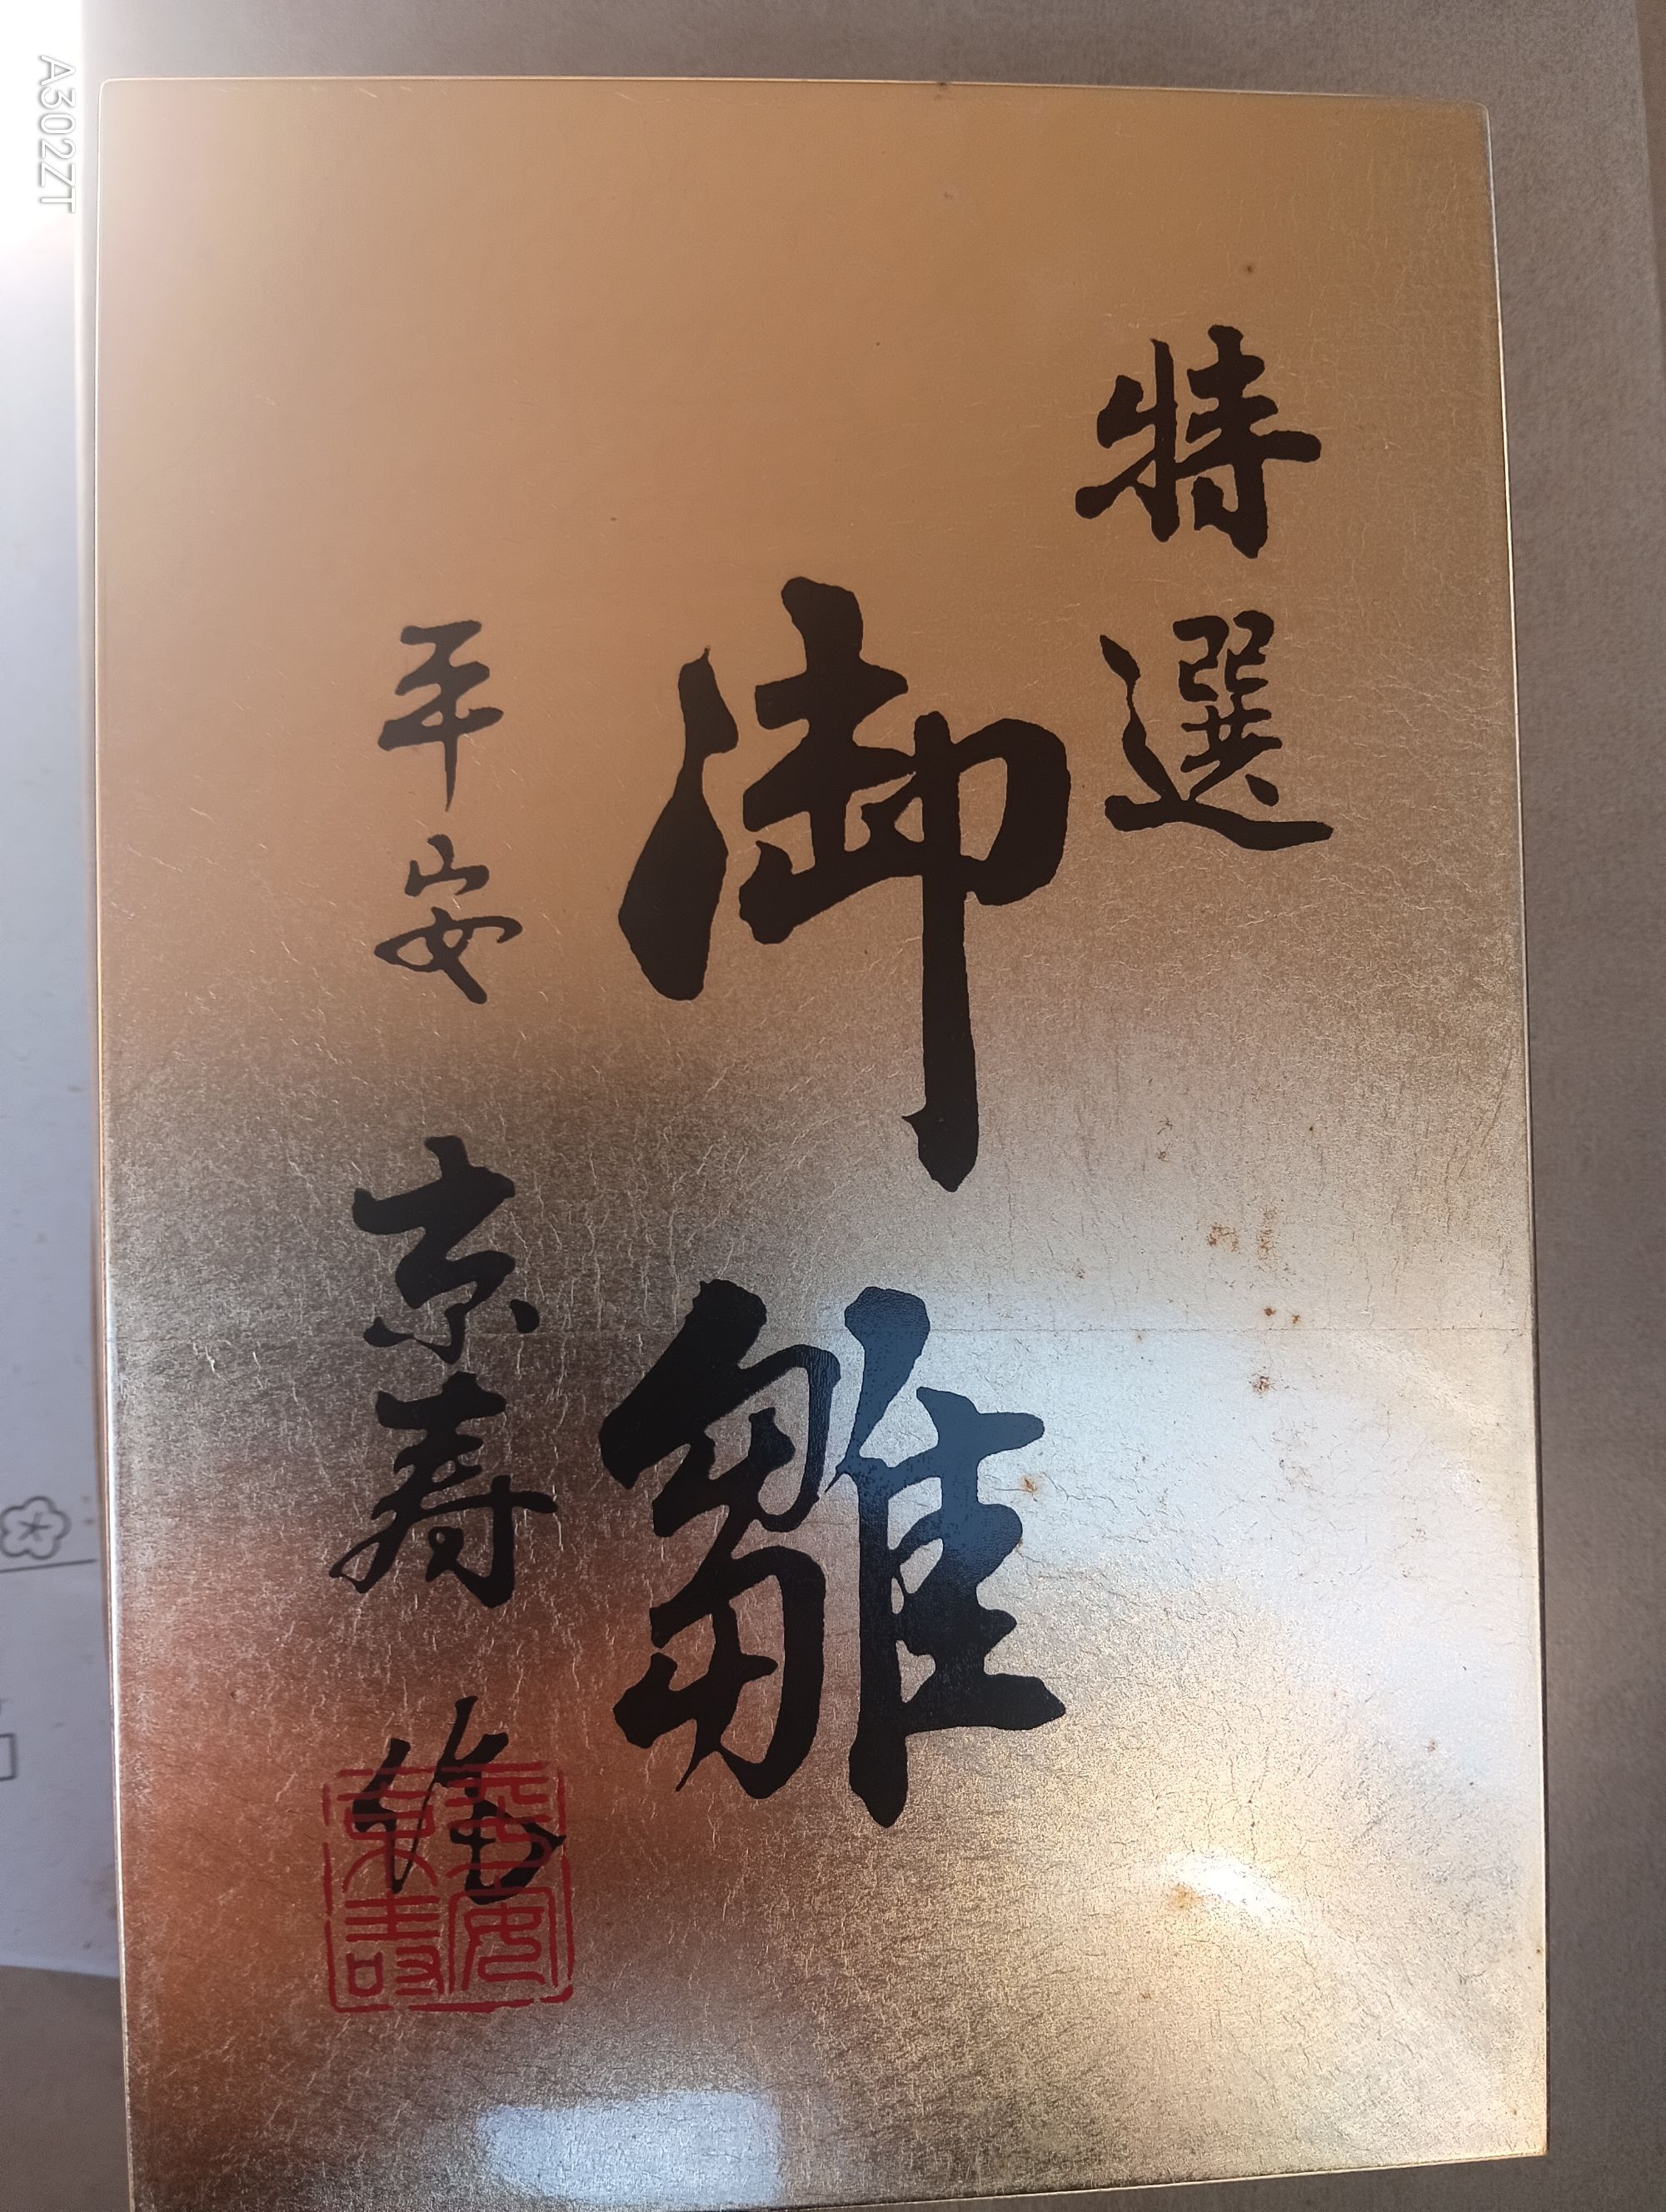 特選
御雛
平安 京寿 作
平安京寿
A302ZT